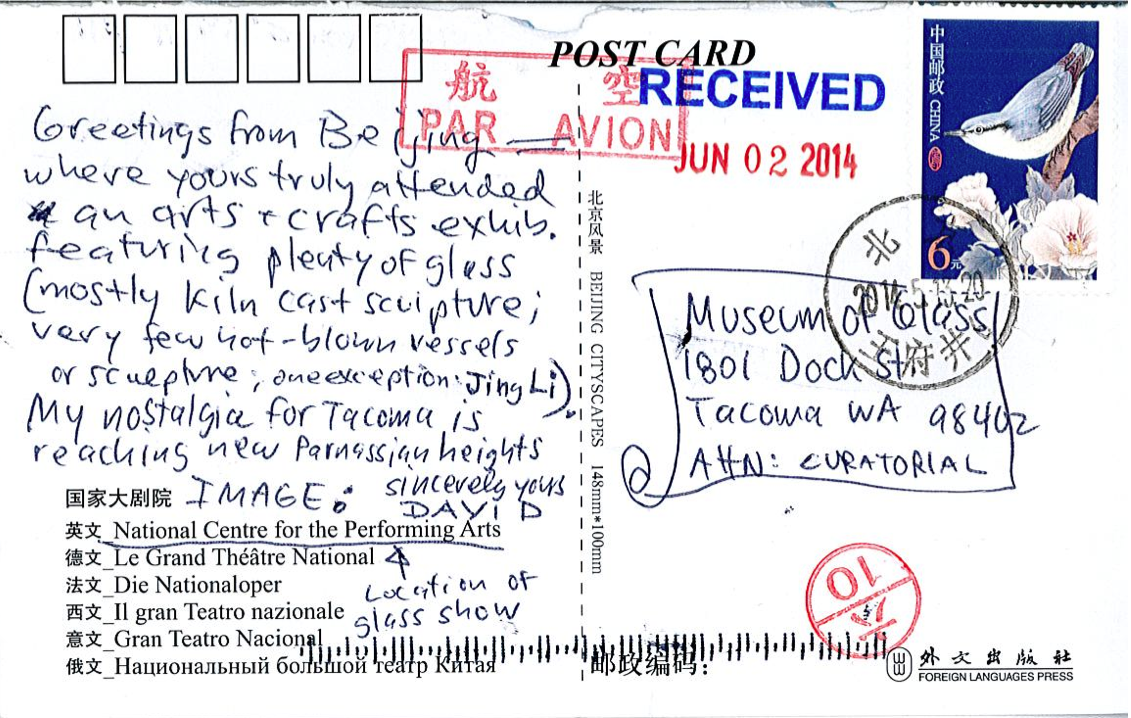 POST CARD
航 空
PAR AVION
RECEIVED
JUN 02 2014
中国邮政 CHINA
6元
北
2014.5.
王府井
Greetings from Beijing —
where yours truly attended
an arts + crafts exhib.
featuring plenty of glass
(mostly kiln cast sculpture;
very few hot-blown vessels
or sculpture; one exception: Jing Li).
My nostalgia for Tacoma is
reaching new Parnassian heights
sincerely yours
DAVID
国家大剧院 IMAGE:
英文_National Centre for the Performing Arts
德文_Le Grand Théâtre National
法文_Die Nationaloper
西文_Il gran Teatro nazionale
意文_Gran Teatro Nacional
俄文_Национальный большой театр Китая
Location of
glass show
北京风景 BEIJING CITYSCAPES 148mm*100mm
Museum of Glass
1801 Dock St
Tacoma WA 98402
ATTN: CURATORIAL
10
邮政编码：
外文出版社
FOREIGN LANGUAGES PRESS